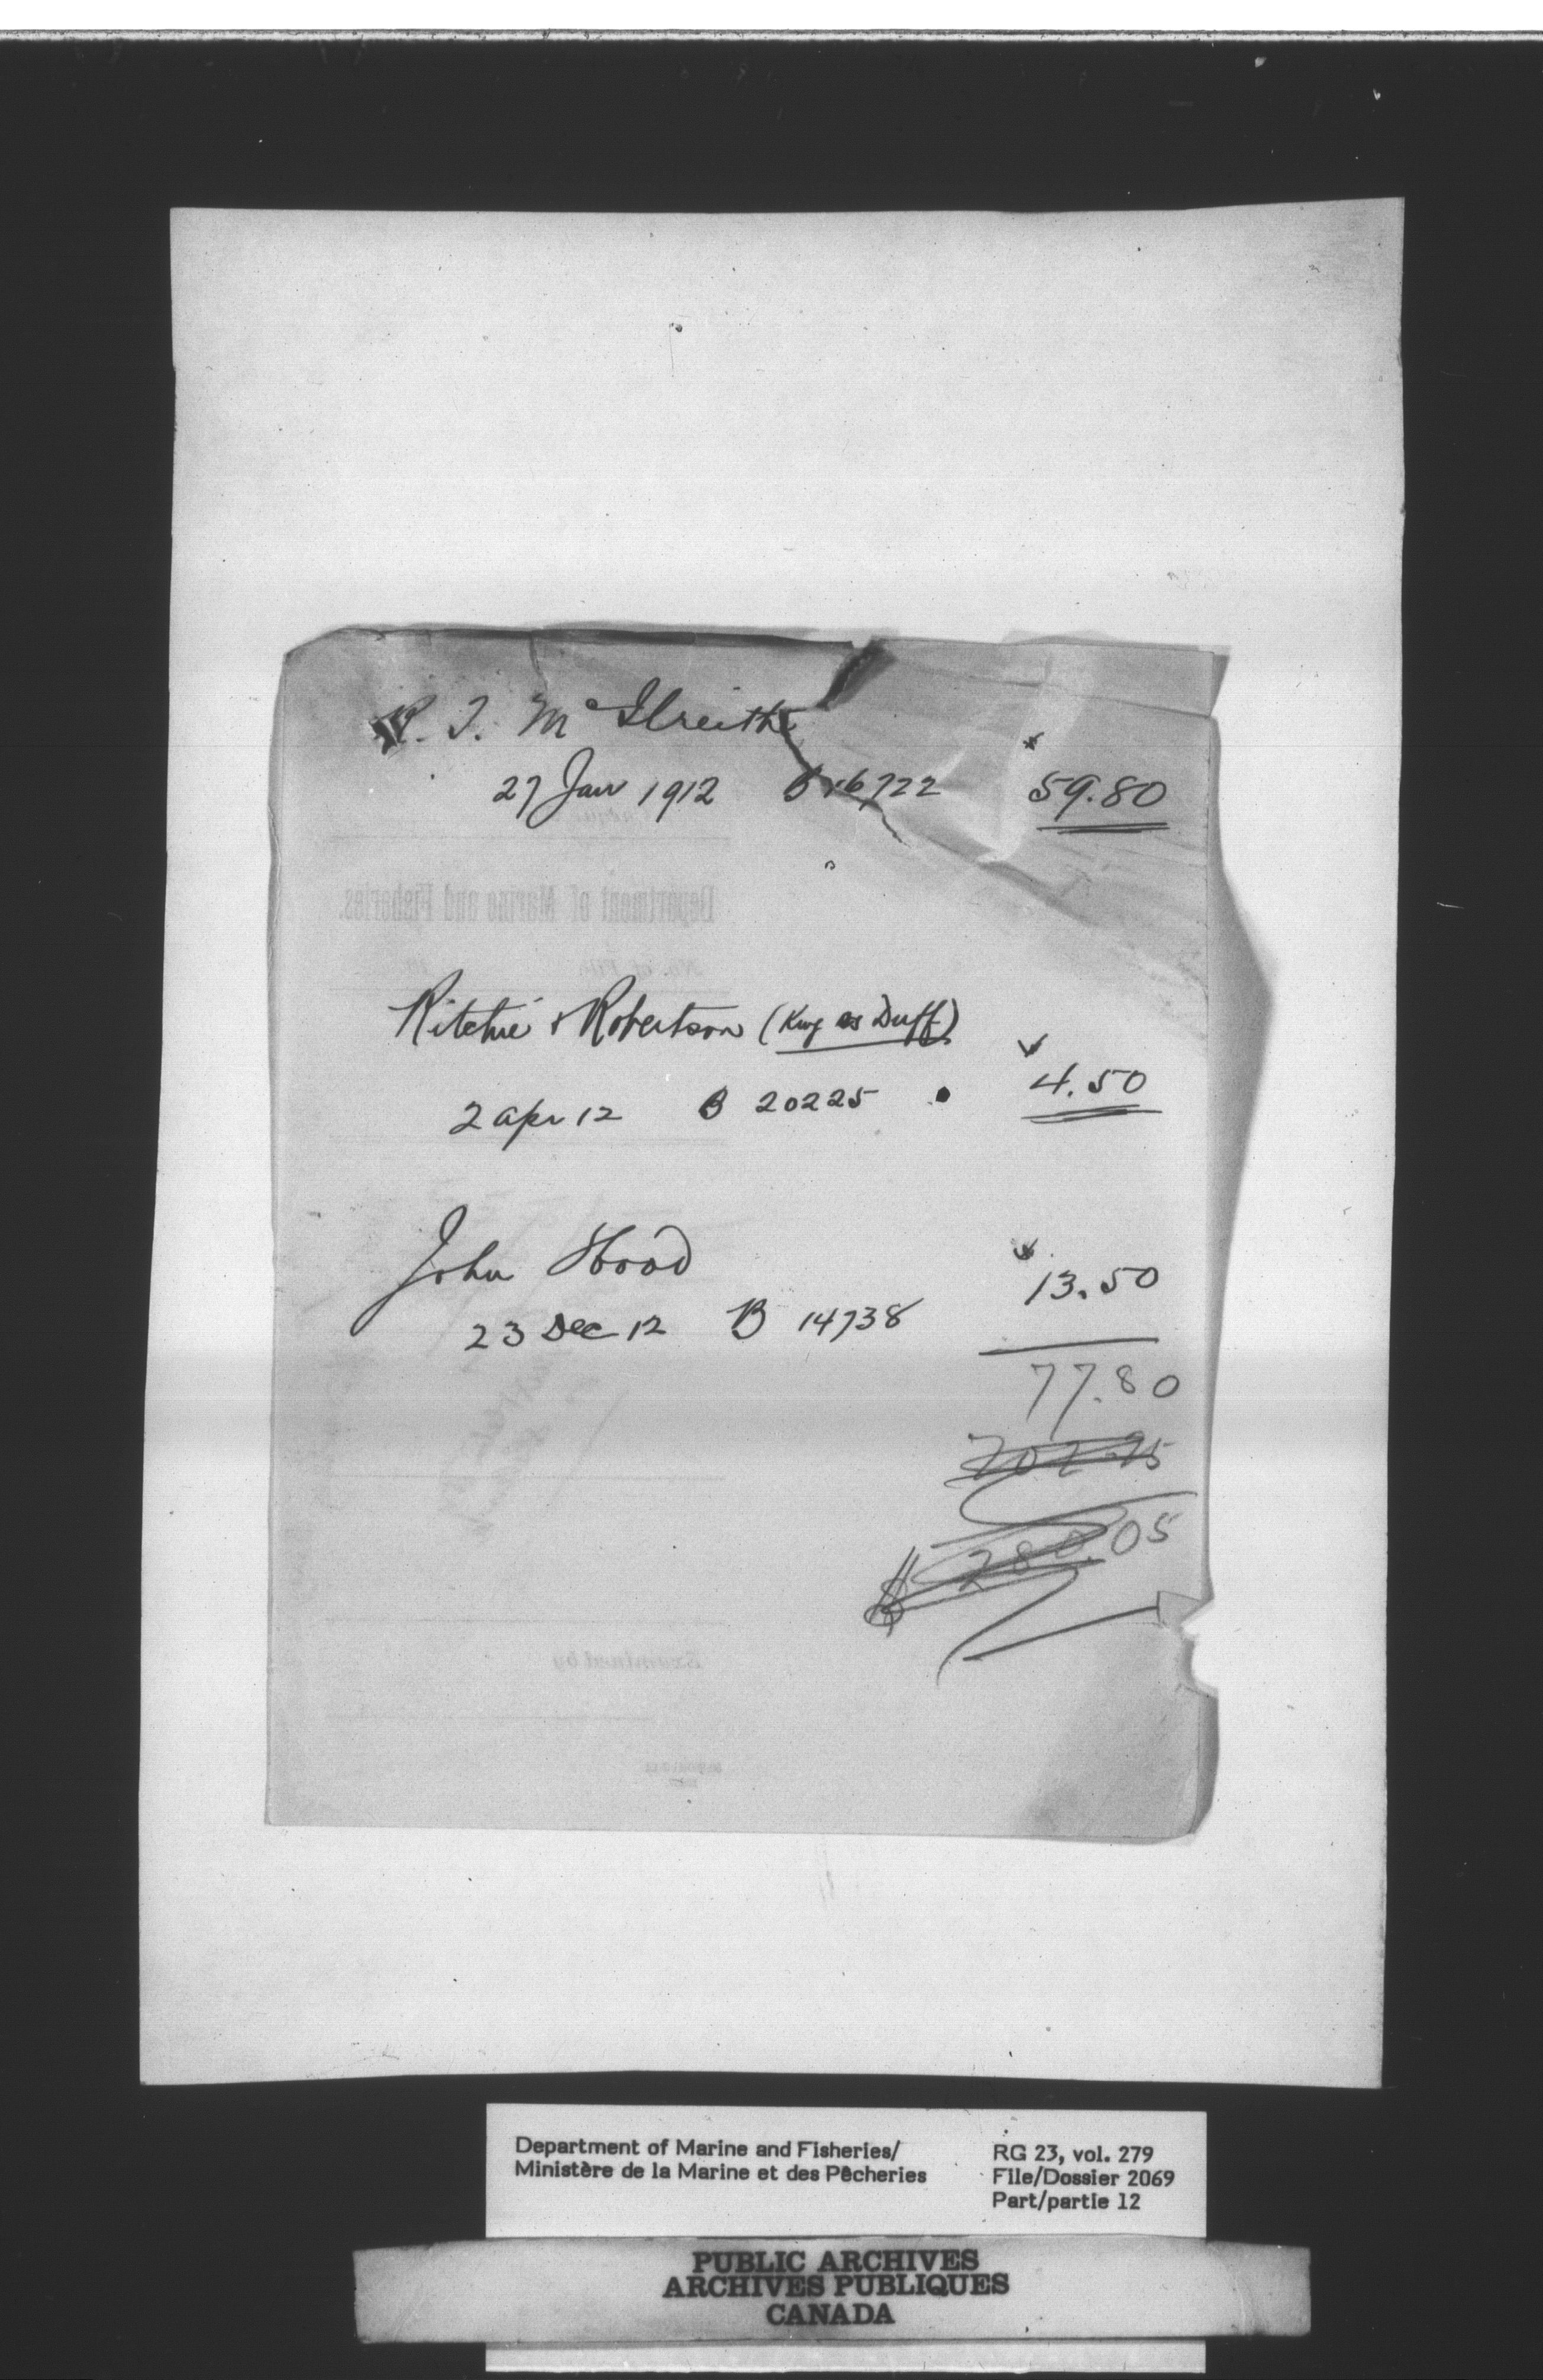 R. T. McIlreith
27 Jan 1912 B 16722 59.80
Ritchie & Robertson (King vs Duff)
2 Apr 12 B 20225 4.50
John Hood 13.50
23 Dec 12 B 14738
77.80
202.25
$ 280.05
Department of Marine and Fisheries.
No. of File 19
Examined by
Department of Marine and Fisheries/ RG 23, vol. 279
Ministère de la Marine et des Pêcheries File/Dossier 2069
Part/partie 12
PUBLIC ARCHIVES
ARCHIVES PUBLIQUES
CANADA